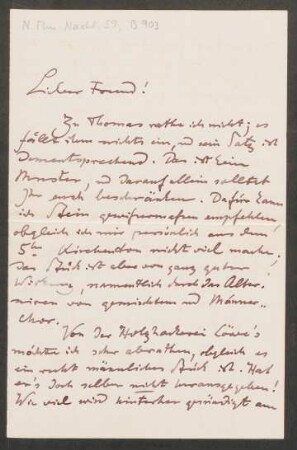 N. Thu. Nachl. 57, B 903
Lieber Freund!
Zu Thomas rathe ich nicht; es
fällt ihm nichts ein, und sein Satz ist
dementsprechend. Das ist kein
Monster, und darauf allein solltet
Ihr euch beschränken. Dafür kann
ich Stein gewissermaßen empfehlen,
obgleich ich mir persönlich aus dem
5ten Kirchenton nicht viel mache.
Das Stück ist aber von ganz guter
Wirkung, namentlich durch das Alter-
niren von gemischtem und Männer-
chor.
Von der Holzhackerei Löwe's
möchte ich sehr abrathen, obgleich es
ein recht männliches Stück ist. Hat
er's doch selber nicht herausgegeben!
Wie viel wird hinterher gesündigt am